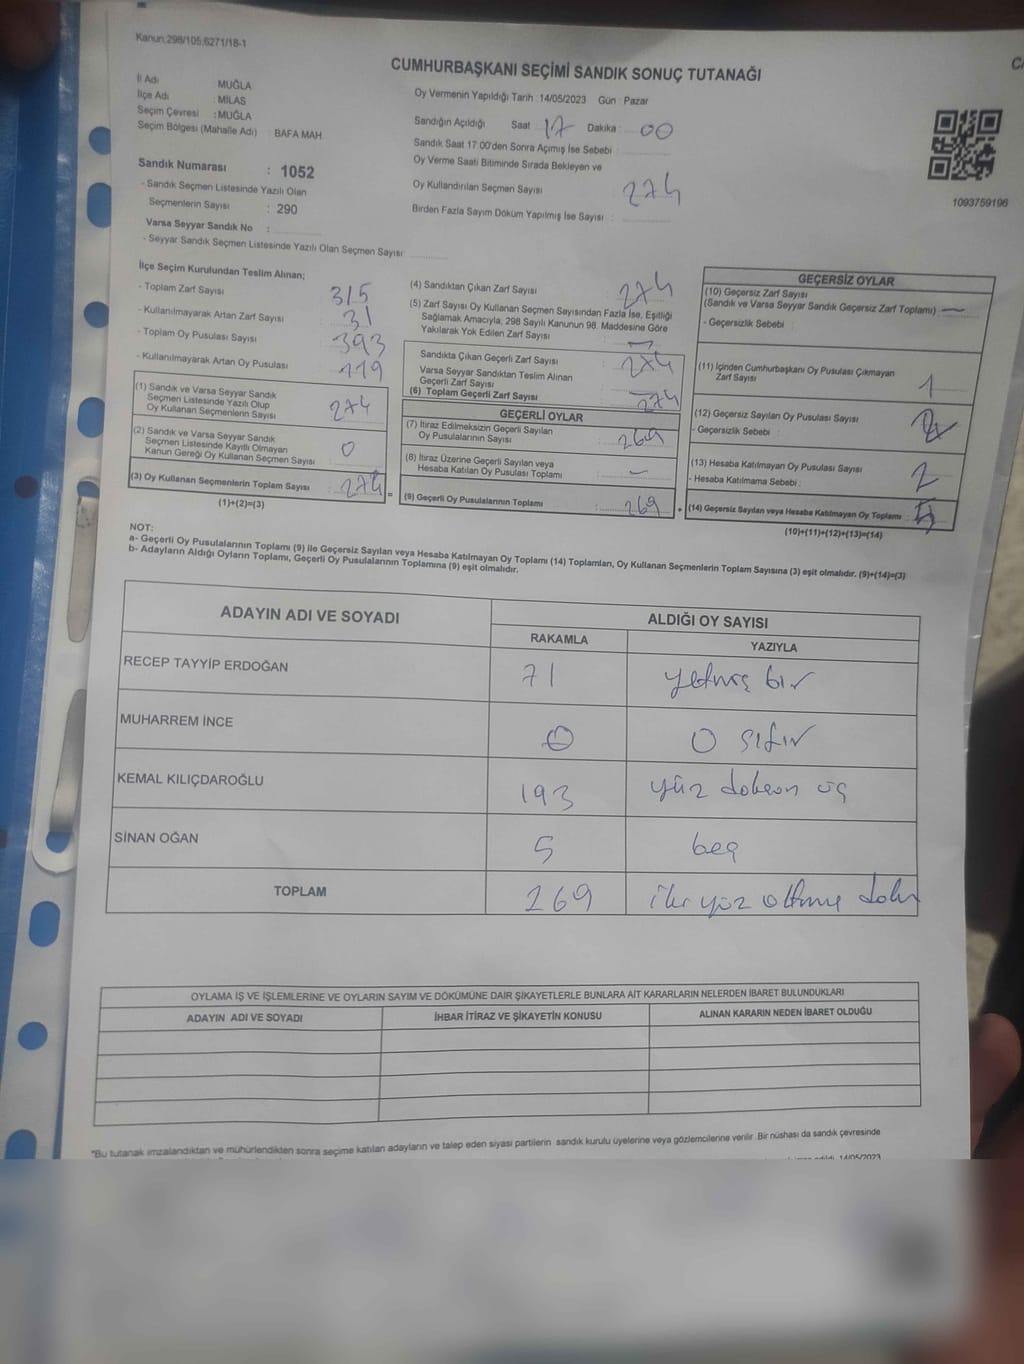 Kanun.298/105.6271/18-1
CUMHURBAŞKANI SEÇİMİ SANDIK SONUÇ TUTANAĞI
İl Adı : MUĞLA
İlçe Adı : MİLAS
Seçim Çevresi : MUĞLA
Seçim Bölgesi (Mahalle Adı) : BAFA MAH
Sandık Numarası : 1052
- Sandık Seçmen Listesinde Yazılı Olan
Seçmenlerin Sayısı : 290
Varsa Seyyar Sandık No :
- Seyyar Sandık Seçmen Listesinde Yazılı Olan Seçmen Sayısı
Oy Vermenin Yapıldığı Tarih :14/05/2023 Gün : Pazar
Sandığın Açıldığı Saat : 17 Dakika : 00
Sandık Saat 17:00'den Sonra Açımış İse Sebebi :
Oy Verme Saati Bitiminde Sırada Bekleyen ve
Oy Kullandırılan Seçmen Sayısı 274
Birden Fazla Sayım Döküm Yapılmış İse Sayısı :
1093759196
İlçe Seçim Kurulundan Teslim Alınan;
- Toplam Zarf Sayısı 315
- Kullanılmayarak Artan Zarf Sayısı 31
- Toplam Oy Pusulası Sayısı 393
- Kullanılmayarak Artan Oy Pusulası 119
(1) Sandık ve Varsa Seyyar Sandık
Seçmen Listesinde Yazılı Olup
Oy Kullanan Seçmenlerin Sayısı 274
(2) Sandık ve Varsa Seyyar Sandık
Seçmen Listesinde Kayıtlı Olmayan
Kanun Gereği Oy Kullanan Seçmen Sayısı 0
(3) Oy Kullanan Seçmenlerin Toplam Sayısı : 274 =
(1)+(2)=(3)
(4) Sandıktan Çıkan Zarf Sayısı 274
(5) Zarf Sayısı Oy Kullanan Seçmen Sayısından Fazla İse, Eşitliği
Sağlamak Amacıyla, 298 Sayılı Kanunun 98. Maddesine Göre
Yakılarak Yok Edilen Zarf Sayısı -
Sandıkta Çıkan Geçerli Zarf Sayısı 274
Varsa Seyyar Sandıktan Teslim Alınan
Geçerli Zarf Sayısı
(6) Toplam Geçerli Zarf Sayısı 274
GEÇERLİ OYLAR
(7) İtiraz Edilmeksizin Geçerli Sayılan
Oy Pusulalarının Sayısı 269
(8) İtiraz Üzerine Geçerli Sayılan veya
Hesaba Katılan Oy Pusulası Toplamı -
(9) Geçerli Oy Pusulalarının Toplamı 269 +
GEÇERSİZ OYLAR
(10) Geçersiz Zarf Sayısı
(Sandık ve Varsa Seyyar Sandık Geçersiz Zarf Toplamı) -
- Geçersizlik Sebebi :
(11) İçinden Cumhurbaşkanı Oy Pusulası Çıkmayan
Zarf Sayısı 1
(12) Geçersiz Sayılan Oy Pusulası Sayısı
- Geçersizlik Sebebi :
(13) Hesaba Katılmayan Oy Pusulası Sayısı 2
- Hesaba Katılmama Sebebi :
(14) Geçersiz Sayılan veya Hesaba Katılmayan Oy Toplamı : 5
(10)+(11)+(12)+(13)=(14)
NOT:
a- Geçerli Oy Pusulalarının Toplamı (9) ile Geçersiz Sayılan veya Hesaba Katılmayan Oy Toplamı (14) Toplamları, Oy Kullanan Seçmenlerin Toplam Sayısına (3) eşit olmalıdır. (9)+(14)=(3)
b- Adayların Aldığı Oyların Toplamı, Geçerli Oy Pusulalarının Toplamına (9) eşit olmalıdır.
ADAYIN ADI VE SOYADI ALDIĞI OY SAYISI
RAKAMLA YAZIYLA
RECEP TAYYİP ERDOĞAN 71 yetmiş bir
MUHARREM İNCE 0 0 sıfır
KEMAL KILIÇDAROĞLU 193 yüz doksan üç
SİNAN OĞAN 5 beş
TOPLAM 269 iki yüz altmış doku
OYLAMA İŞ VE İŞLEMLERİNE VE OYLARIN SAYIM VE DÖKÜMÜNE DAİR ŞİKAYETLERLE BUNLARA AİT KARARLARIN NELERDEN İBARET BULUNDUKLARI
ADAYIN ADI VE SOYADI İHBAR İTİRAZ VE ŞİKAYETİN KONUSU ALINAN KARARIN NEDEN İBARET OLDUĞU
"Bu tutanak imzalandıktan ve mühürlendikten sonra seçime katılan adayların ve talep eden siyasi partilerin sandık kurulu üyelerine veya gözlemcilerine verilir. Bir nüshası da sandık çevresinde
14/05/2023